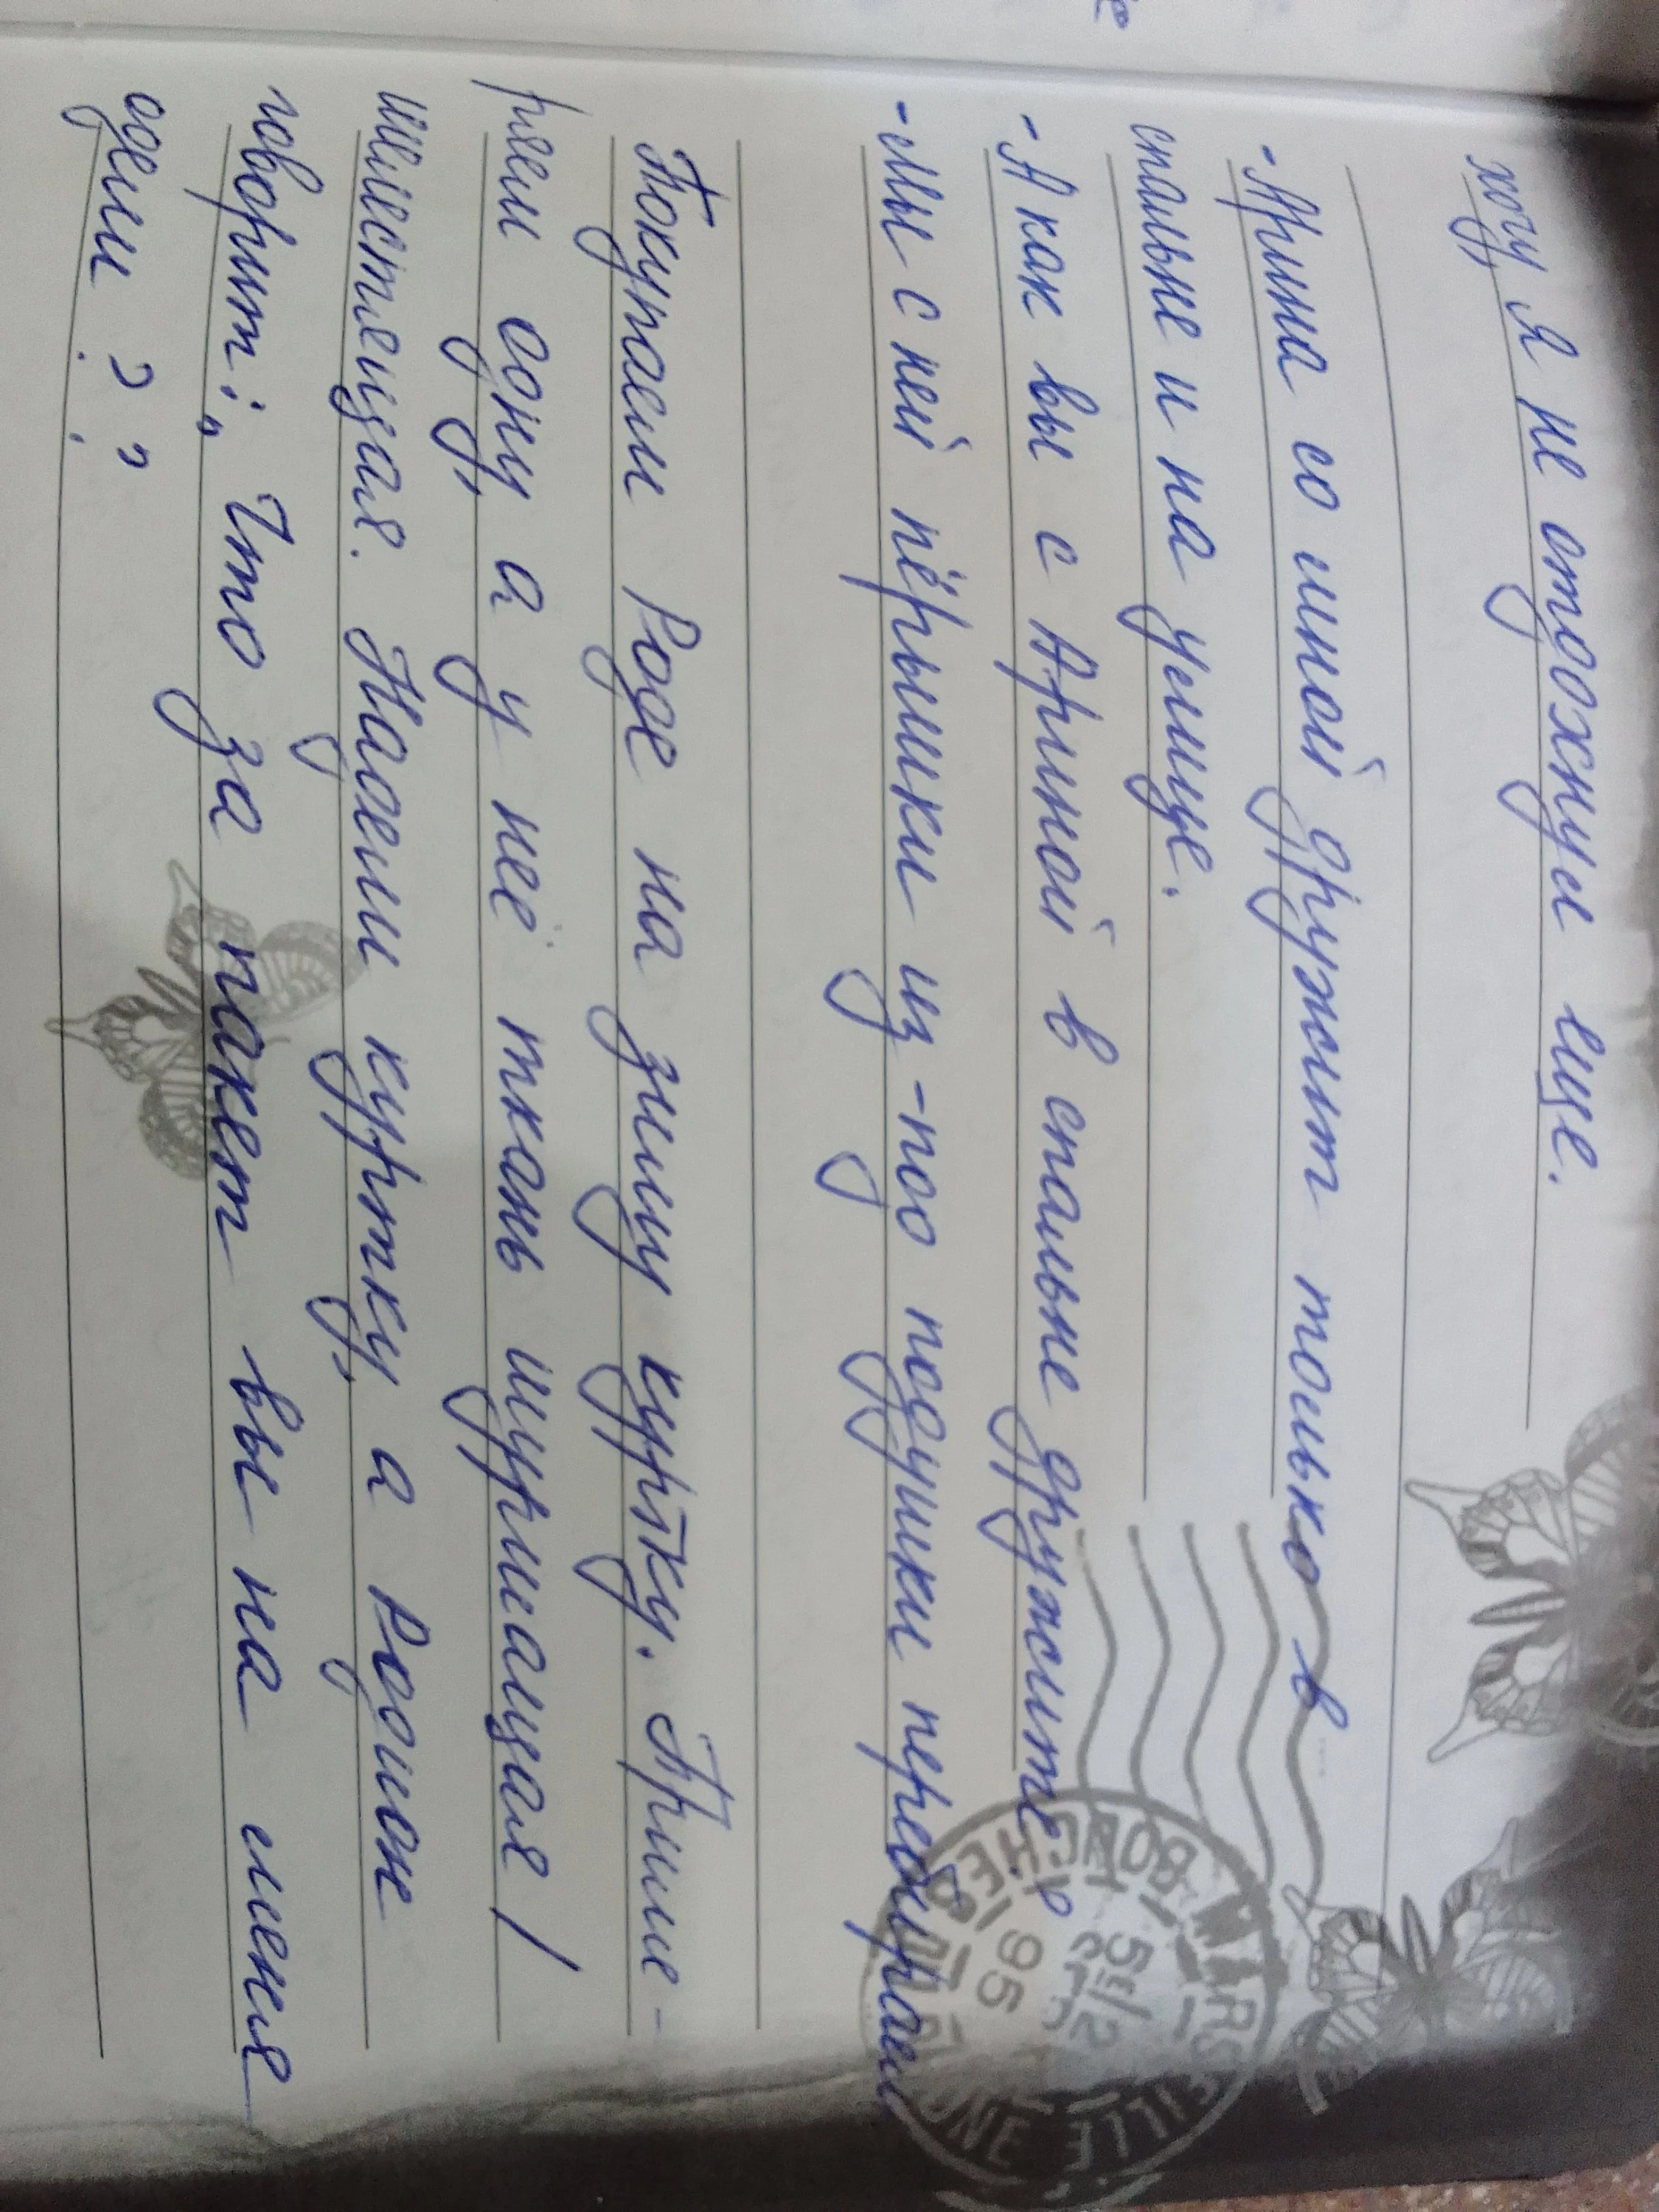 хочу, я не отдохнул ещё.
- Арина со мной дружит только в
спальне и на улице.
- А как вы с Ариной в спальне дружите?
- Мы с ней пёрышки из-под подушки перебираем
Покупаем Роде на зиму куртку. Приме-
ряем одну, а у неё ткань шуршащая /
шелестящая. Надели куртку, а Родион
говорит: „Что за пакет вы на меня
одели??
MARSEILLE
BOUCHES DU RHONE
95